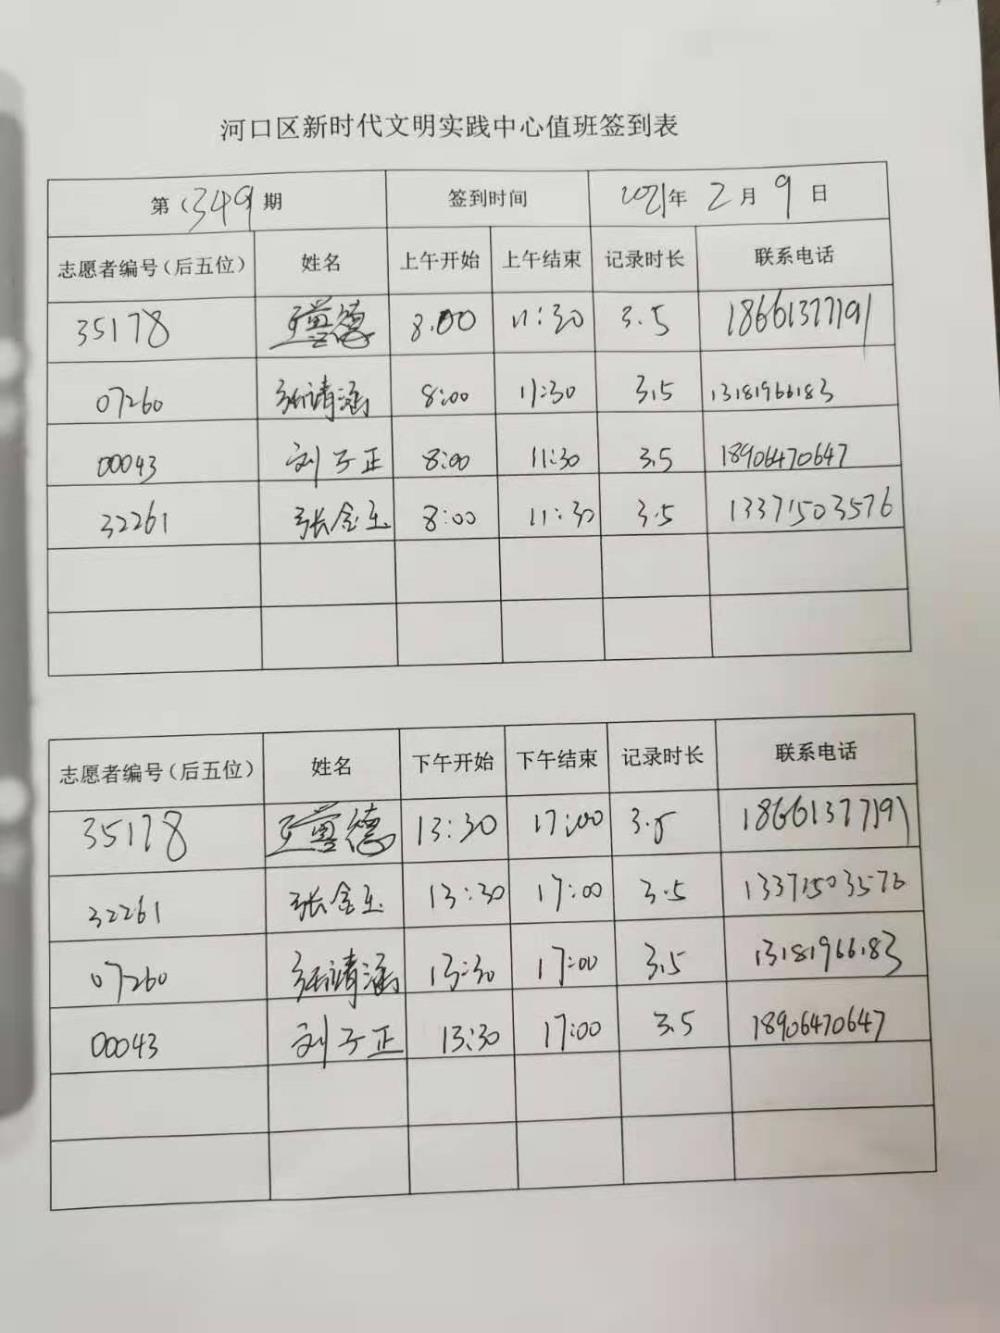 河口区新时代文明实践中心值班签到表
第(349期 签到时间 2021年 2月 9日
志愿者编号(后五位) 姓名 上午开始 上午结束 记录时长 联系电话
35178 德 8:00 11:30 3.5 18661377191
07260 张靖涵 8:00 11:30 3.5 13181966183
00043 刘子正 8:00 11:30 3.5 18906470647
32261 张金玉 8:00 11:30 3.5 13371503576
志愿者编号(后五位) 姓名 下午开始 下午结束 记录时长 联系电话
35178 德 13:30 17:00 3.5 18661377191
32261 张金玉 13:30 17:00 3.5 13371503576
07260 张靖涵 13:30 17:00 3.5 13181966183
00043 刘子正 13:30 17:00 3.5 18906470647